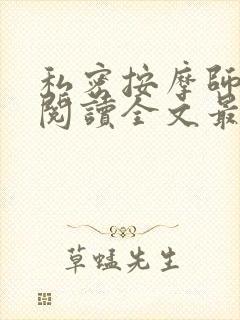 私密按摩師
閱讀全文最
草蜢先生